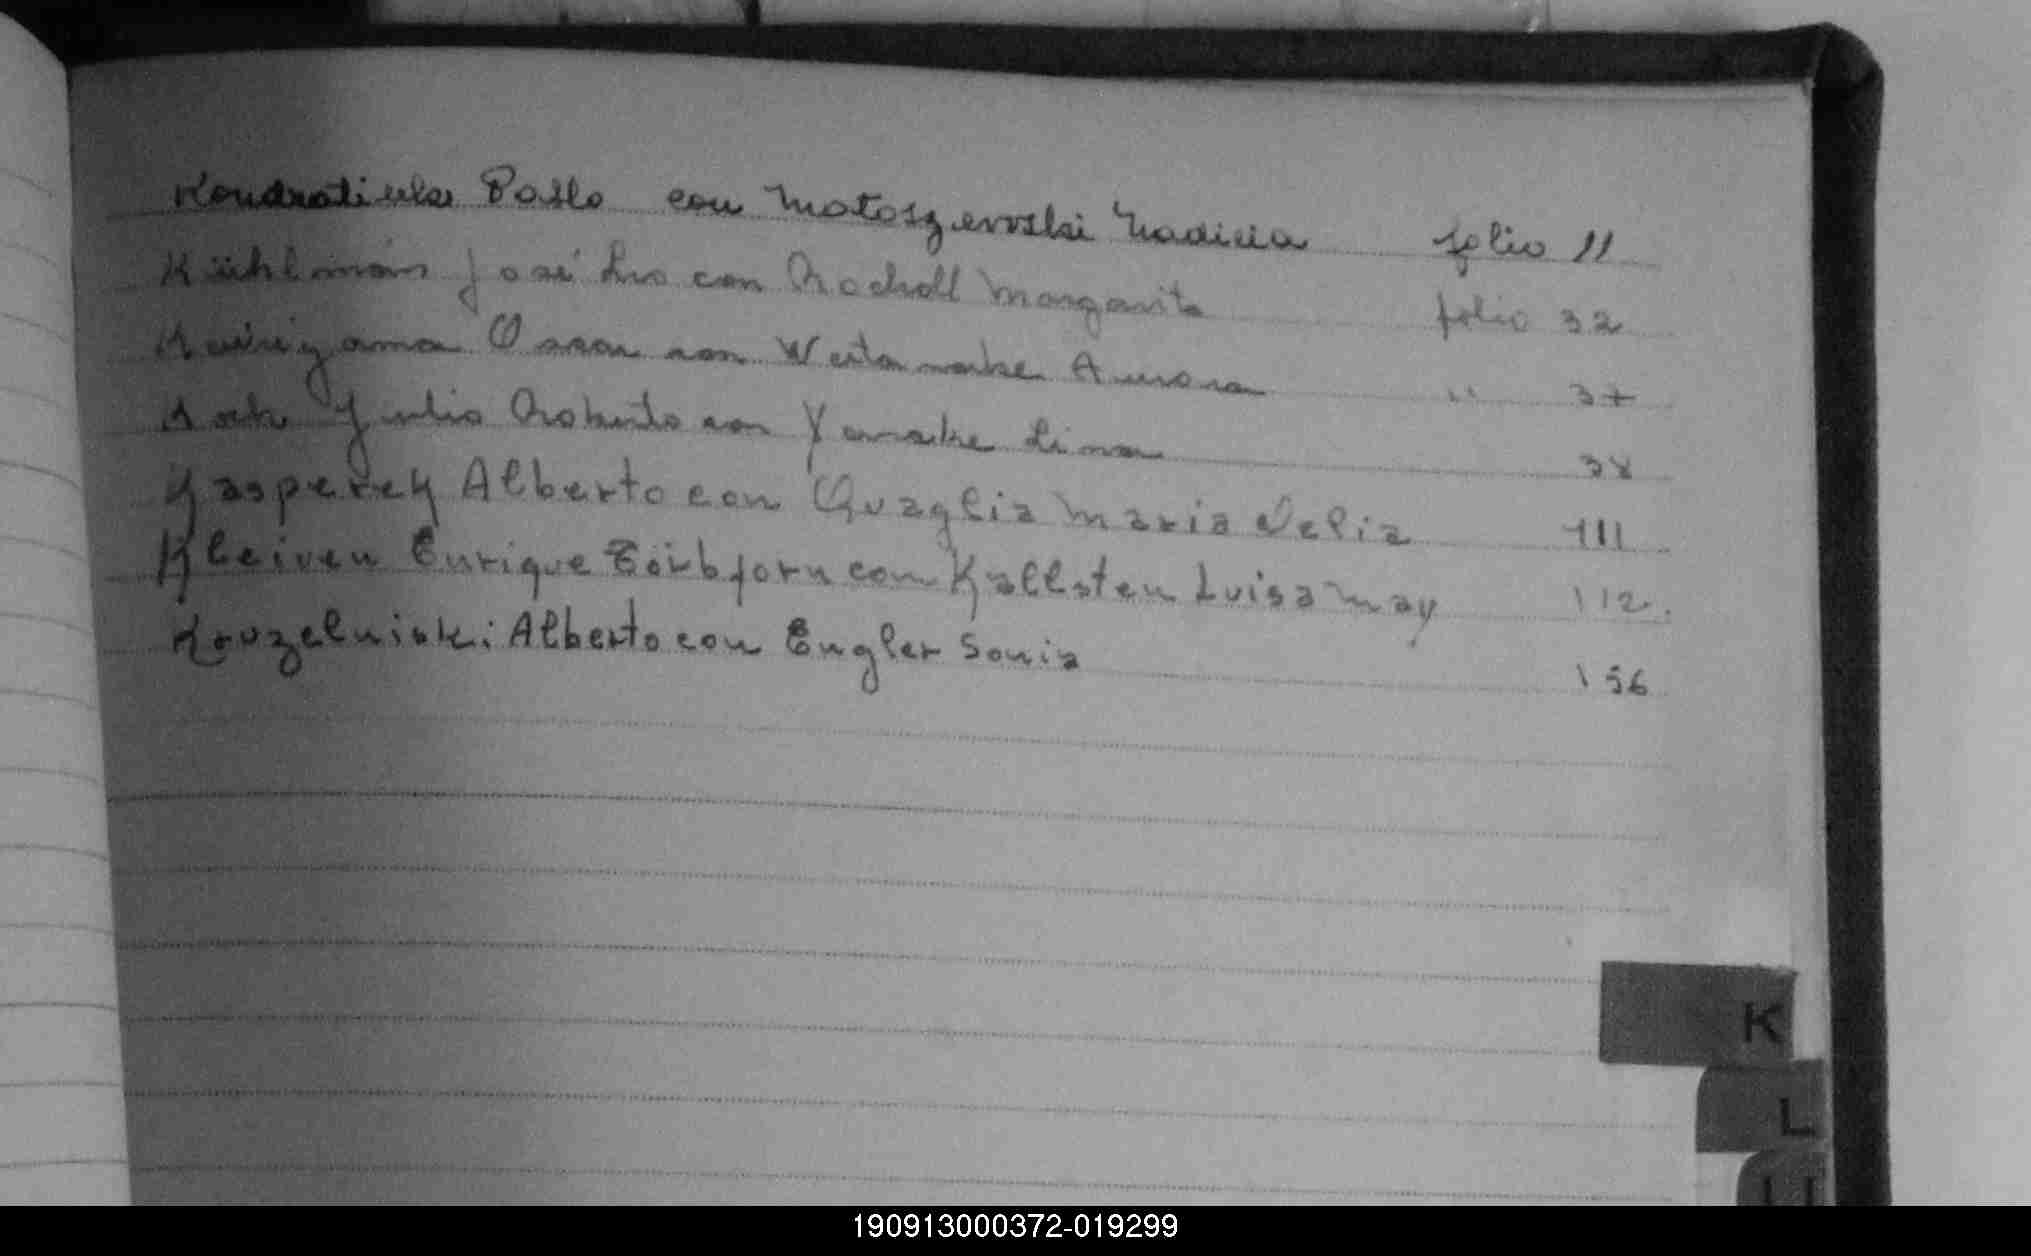 Kondratiuk Pablo con Matoszewski Nadieia folio 11
Kühlmann José Leo con Rocholl Margarita folio 32
Kuriyama Oscar con Watanabe Aurora " 37
Julio Roberto con Yanake Lina 38
Kasperek Alberto con Quaglia Maria Velia 111
Kleiven Enrique Torbjorn con Kallsten Luisa May 112.
Kouzelniski Alberto con Engler Sonia 156
K
L
190913000372-019299